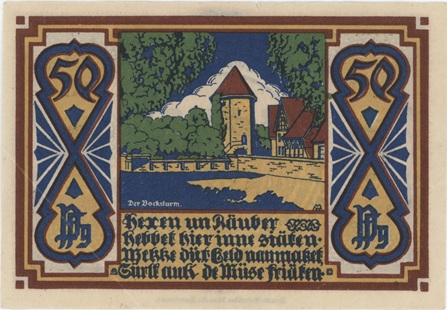 50
50
Der Bocksturm.
Hexen un Räuber
Hebbet hier inne siäten.
Wekke düt Geld nanmaket
Süllt auk de Müse friäten.
Pfg
Pfg